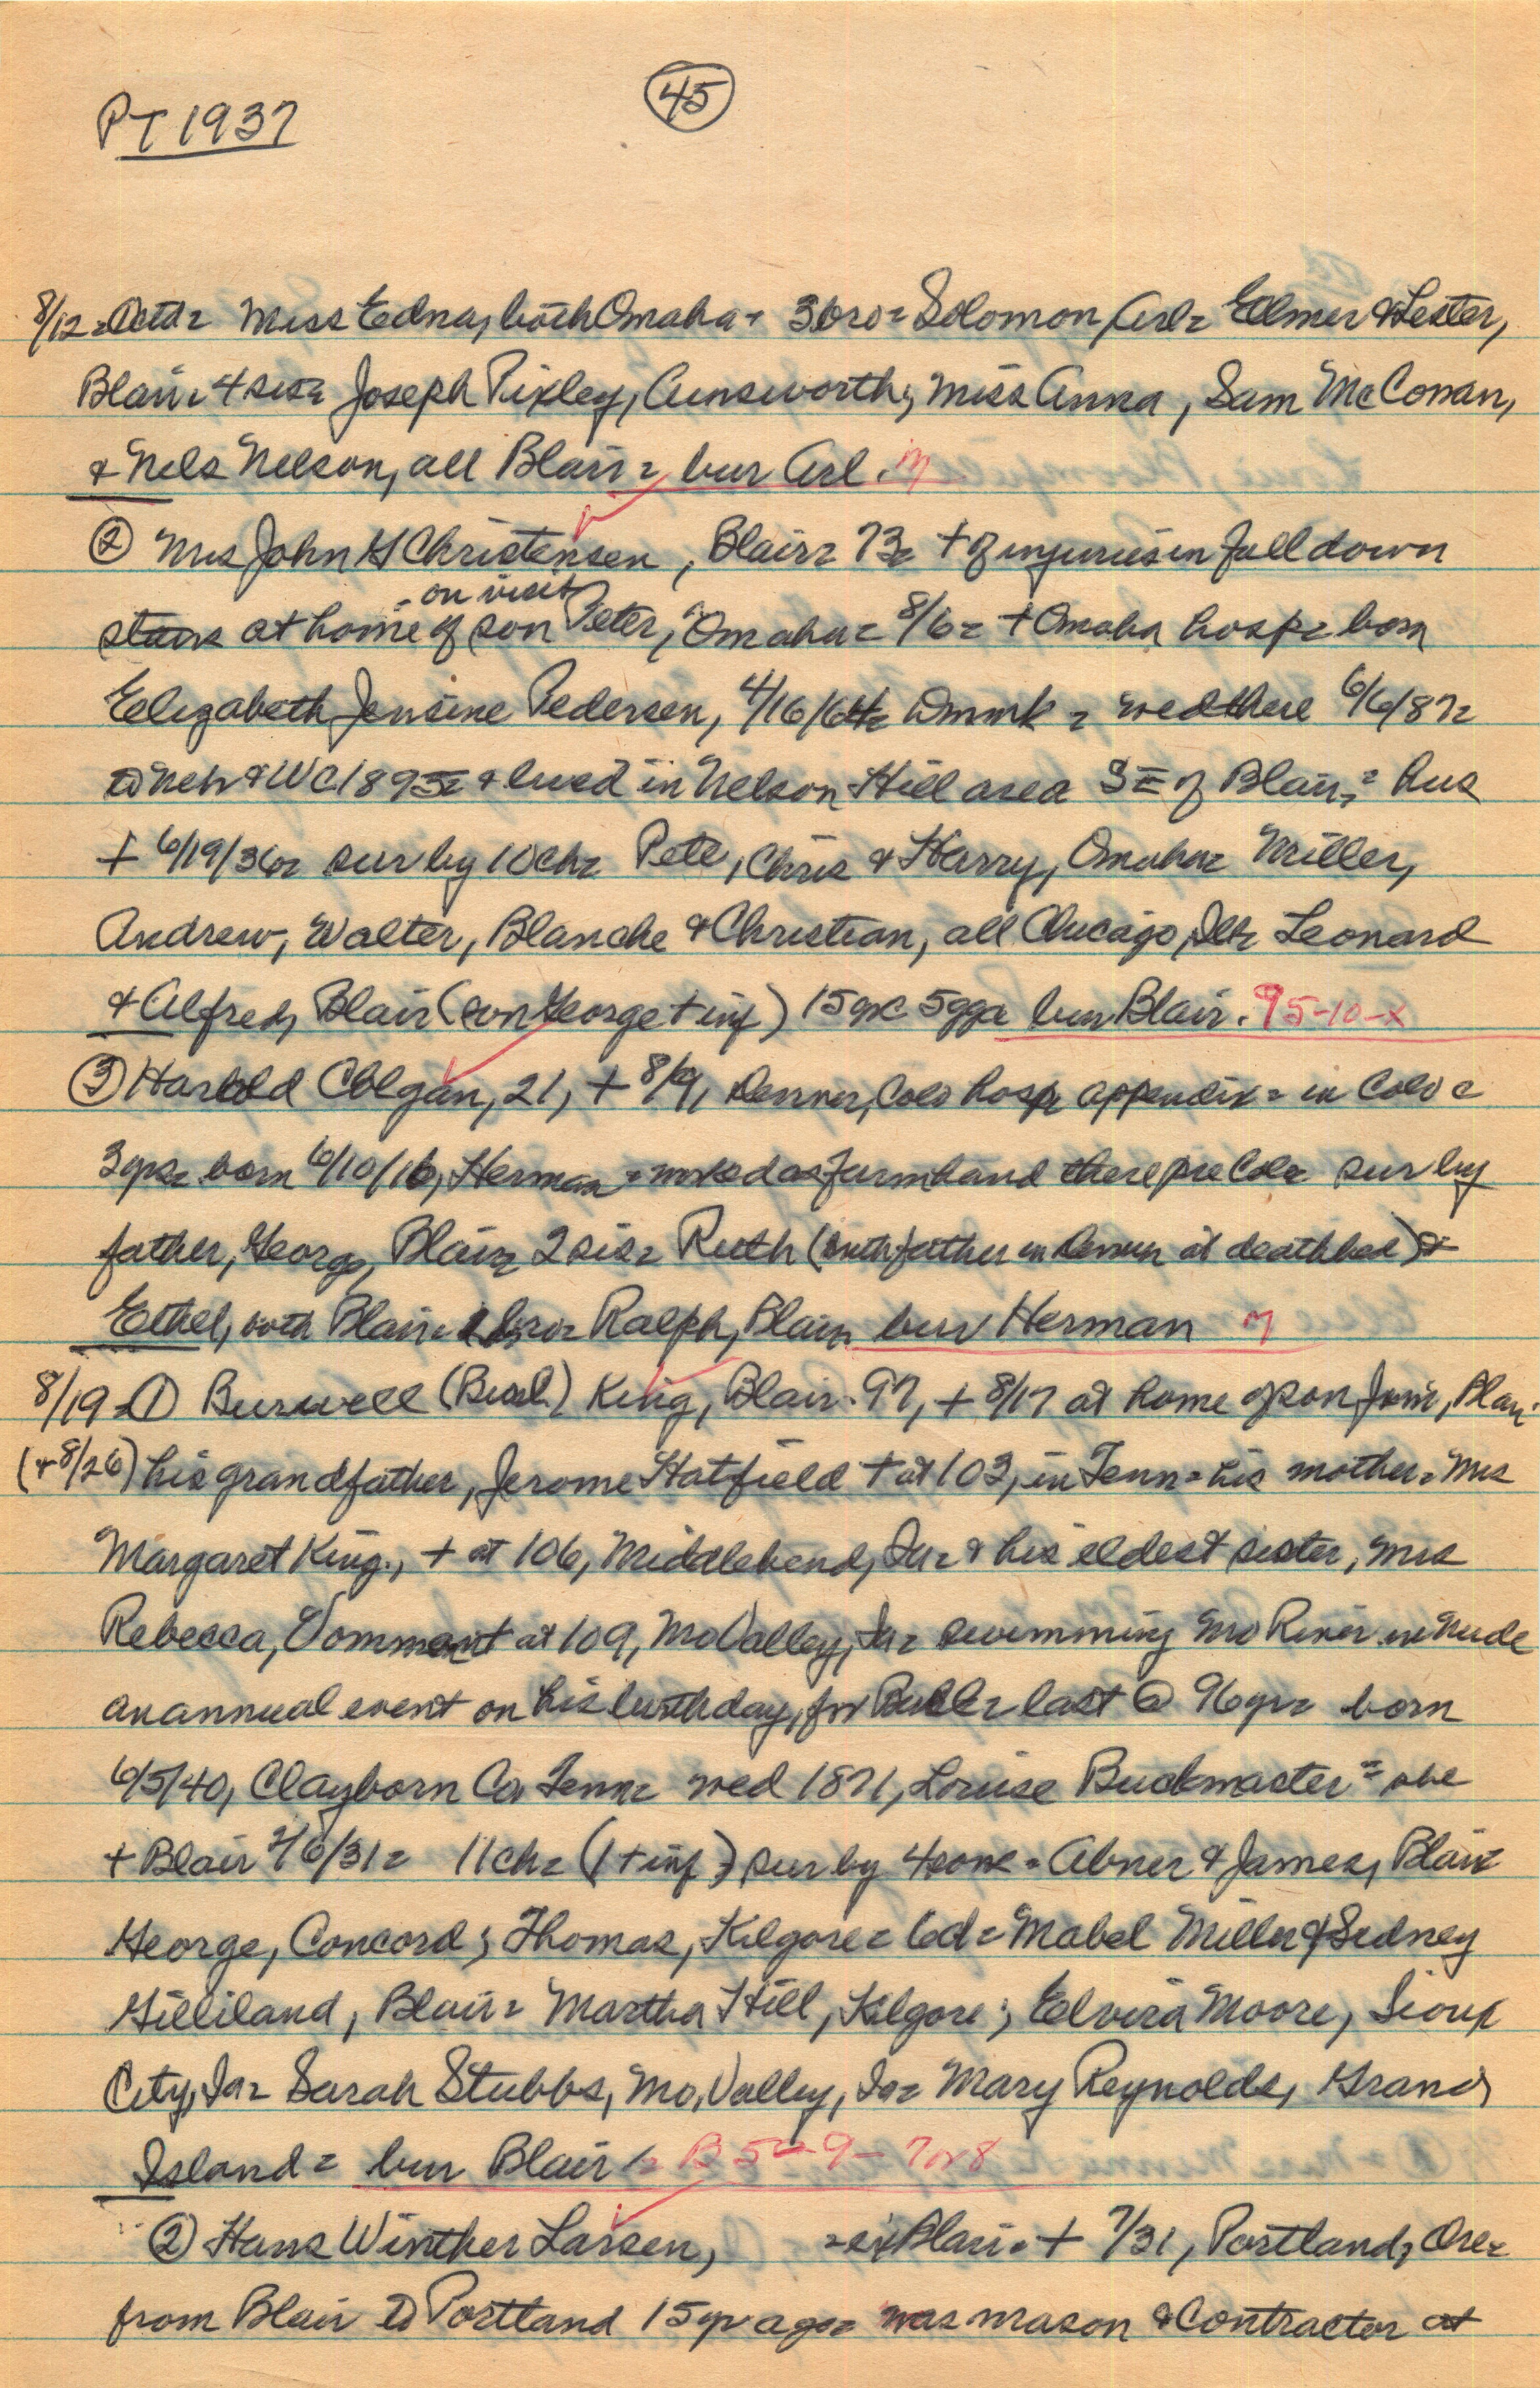 45
PT 1937
8/12 = Contd = Miss Edna, both Omaha = 3 bro = Solomon, Arl = Elmer & Lester,
Blair = 4 sis = Joseph Pixley, Ainsworth; Miss Anna, Sam McConan,
& Nels Nelson, all Blair = bur Arl. M
② Mrs John H Christensen, Blair = 73 = + of injuries in fall down
- on visit
stairs at home of son Peter, Omaha = 8/6 = + Omaha hosp = born
Elizabeth Jensine Pedersen, 4/16/64 = Dnmk = wed there 6/6/87 =
to Neb & WC 1893 = & lived in Nelson Hill area S = of Blair = hus
+ 6/19/36 = sur by 10 ch = Pete, Chris & Harry, Omaha = Miller,
Andrew, Walter, Blanche & Christian, all Chicago, Ill = Leonard
& Alfred, Blair (son George + inf) 15 gc 5 ggc bur Blair. 95-10-x
③ Harold Colgan, 21, + 8/9, Denver, Colo hosp appendix = in Colo c
3 yrs = born 6/10/16, Herman = worked as farmhand there pre Col = sur by
father, George, Blair = 2 sis = Ruth (with father in Denver at deathbed) &
Ethel, both Blair = 1 bro = Ralph, Blair = bur Herman M
8/19 = ① Burwell (Burl.) King, Blair = 97, + 8/17 at home of son Jim, Blair
(+ 8/26) his grandfather, Jerome Hatfield + at 103, in Tenn = his mother = Mrs
Margaret King., + at 106, Middlebend, Ia = & his eldest sister, Mrs
Rebecca, at 109, Mo Valley, Ia = swimming Mo River in nude
an annual event on his birthday, for = last @ 96 yr = born
6/5/40, Clayborn Co Tenn = wed 1871, Louise Buckmaster = she
+ Blair 2/6/31 = 11 ch = (1 + inf) sur by 4 sons = Abner & James, Blair
George, Concord; Thomas, Kilgore = 6 d = Mabel Miller & Sidney
Gilliland, Blair = Martha Hill, Kilgore; Elvira Moore, Sioux
City, Ia = Sarah Stubbs, Mo. Valley, Ia = Mary Reynolds, Grand
Island = bur Blair = B 5-9-7 or 8
② Hans Winther Larsen, = ex Blair = + 7/31, Portland, Ore =
from Blair to Portland 15 yr ago = was mason & contractor at